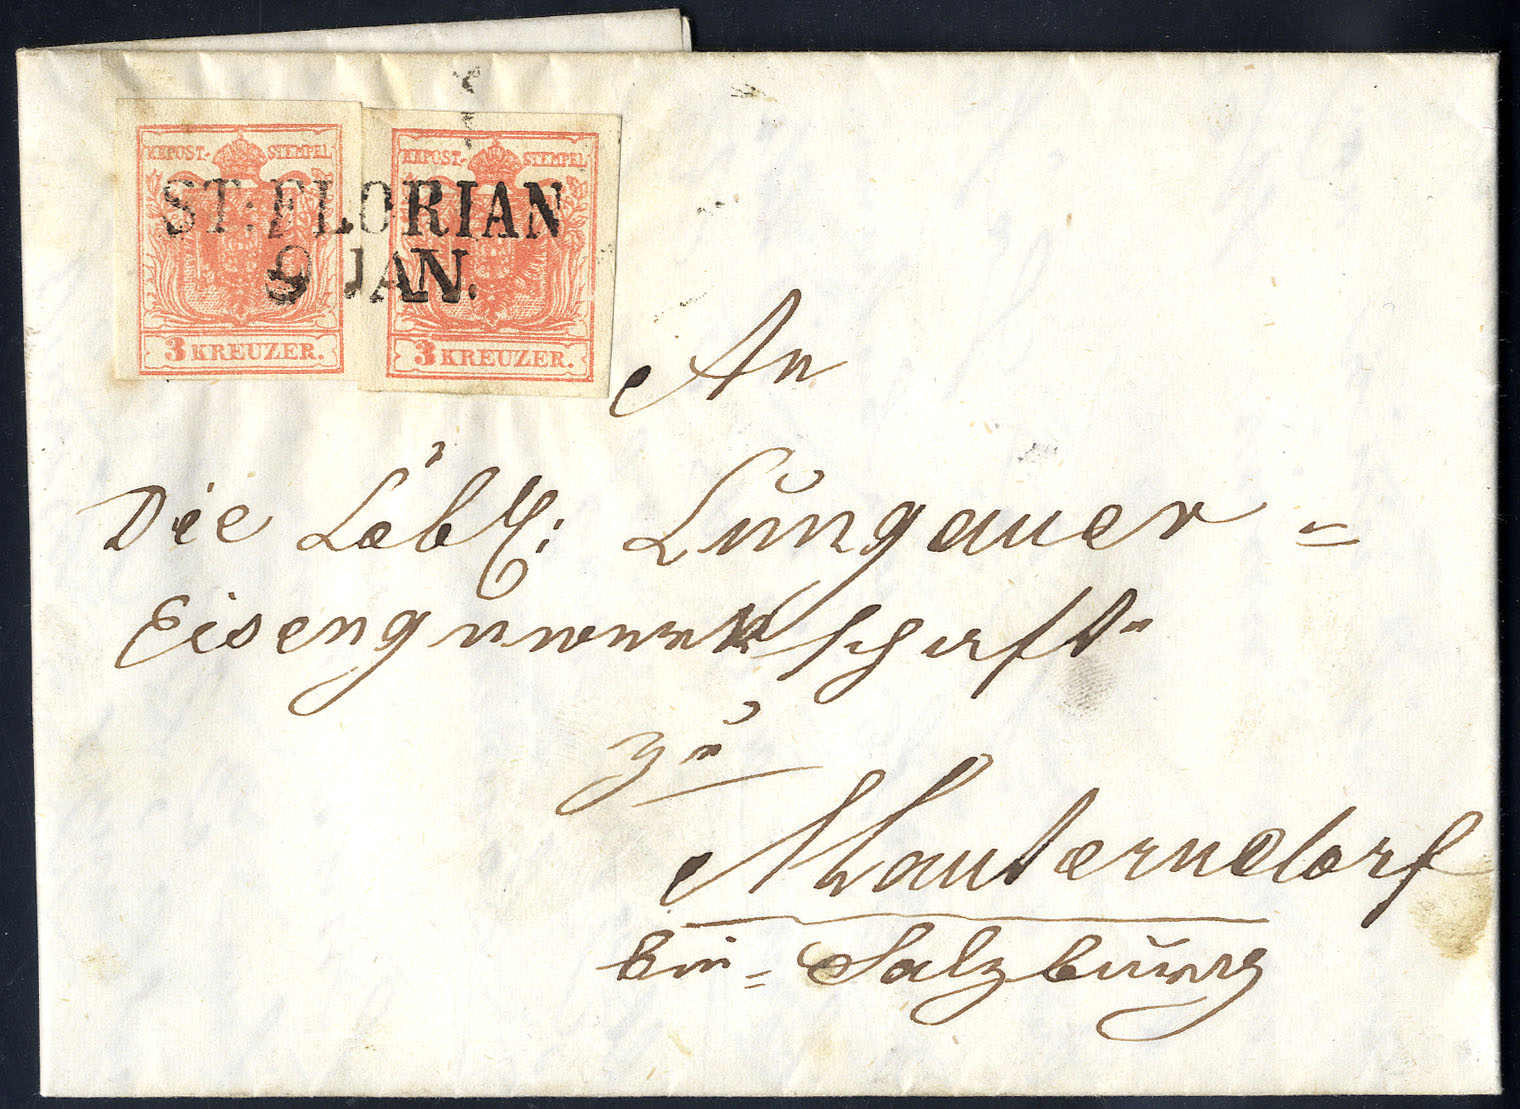 KKPOST-STEMPEL KKPOST-STEMPEL
ST:FLORIAN
9 JAN.
3 KREUZER. 3 KREUZER.
An
Die Löbl: Lungauer=
Eisengewerkschaft
zu
Mauterndorf
bei= Salzburg